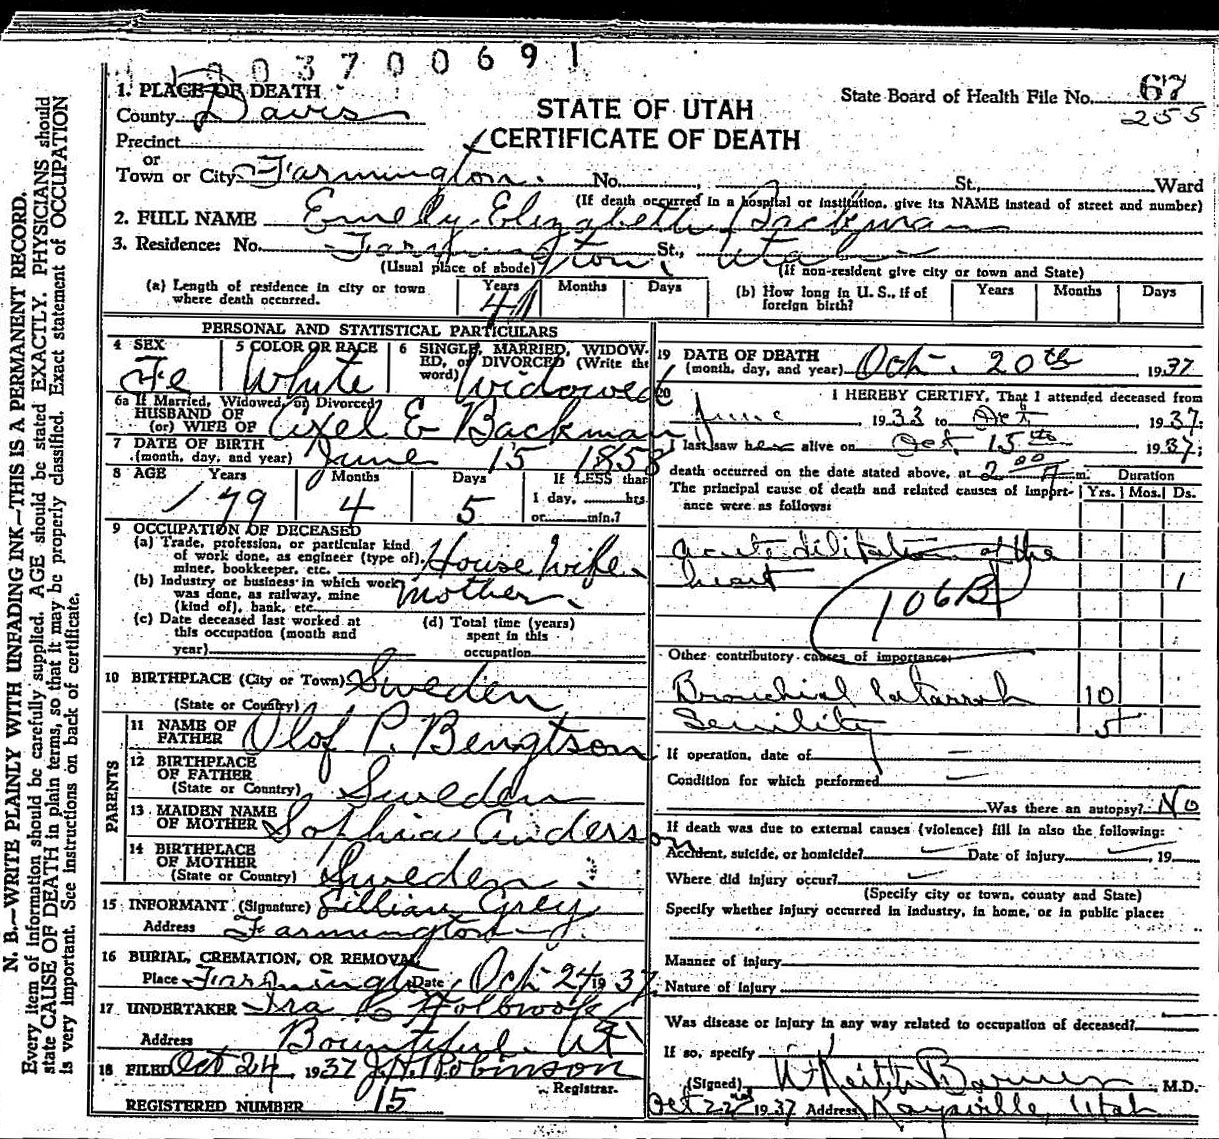 003700691
1. PLACE OF DEATH
County Davis
Precinct
or
Town or City Farmington. No. St., Ward
STATE OF UTAH
CERTIFICATE OF DEATH
State Board of Health File No. 67
255
(If death occurred in a hospital or institution, give its NAME instead of street and number)
2. FULL NAME Emelly Elizabeth Backman
3. Residence: No. Farmington, St., Utah
(Usual place of abode) (If non-resident give city or town and State)
(a) Length of residence in city or town where death occurred. Years 41 Months Days
(b) How long in U. S., if of foreign birth? Years Months Days
PERSONAL AND STATISTICAL PARTICULARS
4 SEX Fe
5 COLOR OR RACE White
6 SINGLE, MARRIED, WIDOWED, or DIVORCED (Write the word) Widowed
6a If Married, Widowed, or Divorced
HUSBAND OF
(or) WIFE OF Axel E Backman
7 DATE OF BIRTH
(month, day, and year) June 15 1858
8 AGE Years 79 Months 4 Days 5 If LESS than
1 day, hrs.
or min.?
9 OCCUPATION OF DECEASED
(a) Trade, profession, or particular kind
of work done, as engineer (type of)
miner, bookkeeper, etc. House Wife
(b) Industry or business in which work
was done, as railway, mine
(kind of), bank, etc. Mother
(c) Date deceased last worked at
this occupation (month and
year)
(d) Total time (years)
spent in this
occupation
10 BIRTHPLACE (City or Town) Sweden
(State or Country)
PARENTS
11 NAME OF
FATHER Olof P. Bengtson
12 BIRTHPLACE
OF FATHER
(State or Country) Sweden
13 MAIDEN NAME
OF MOTHER Sophia Anderson
14 BIRTHPLACE
OF MOTHER
(State or Country) Sweden
15 INFORMANT (Signature) Lillian Grey
Address Farmington
16 BURIAL, CREMATION, OR REMOVAL
Place Farmington Date Oct 24 1937
17 UNDERTAKER Ira C Holbrook
Address Bountiful Ut
18 FILED Oct 24, 1937 J. H. Robinson
Registrar.
REGISTERED NUMBER 15
19 DATE OF DEATH
(month, day, and year) Oct. 20th, 1937
20 I HEREBY CERTIFY, That I attended deceased from
June, 1933 to Oct 1937.
I last saw her alive on Oct 15th 1937;
death occurred on the date stated above, at 2 00 A m. Duration
The principal cause of death and related causes of importance were as follows: Yrs. Mos. Ds.
acute dilitation of the
heart 1
106B
Other contributory causes of importance:
Bronchial Catarrah 10
Senility 5
If operation, date of
Condition for which performed
Was there an autopsy? No
If death was due to external causes (violence) fill in also the following:
Accident, suicide, or homicide? Date of injury , 19
Where did injury occur?
(Specify city or town, county and State)
Specify whether injury occurred in industry, in home, or in public place:
Manner of injury
Nature of injury
Was disease or injury in any way related to occupation of deceased?
If so, specify
(Signed) W Keith Barnes M.D.
Oct 22nd 1937 Address Kaysville, Utah
N. B.—WRITE PLAINLY WITH UNFADING INK—THIS IS A PERMANENT RECORD.
Every item of information should be carefully supplied. AGE should be stated EXACTLY. PHYSICIANS should
state CAUSE OF DEATH in plain terms, so that it may be properly classified. Exact statement of OCCUPATION
is very important. See instructions on back of certificate.